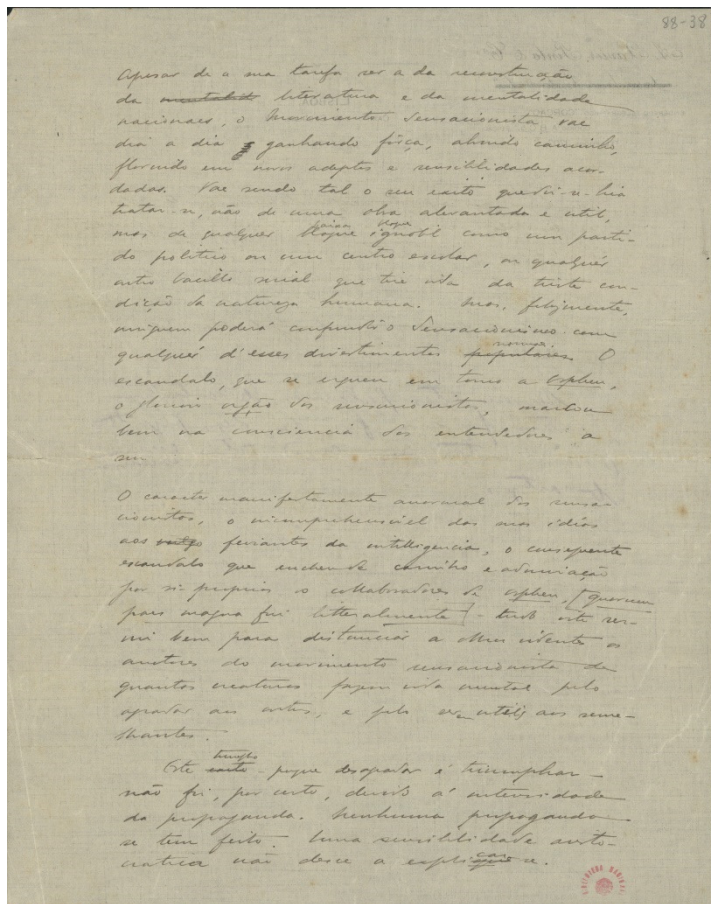 88-38
Apesar de a sua tarefa ser a da reconstrucção
da mentalid literatura e da mentalidade
nacionaes, o Movimento Sensacionista vae
dia a dia ganhando força, abrindo caminho,
florindo em novos adeptos e sensibilidades acor-
dadas. Vae sendo tal o seu exito que dir-se-hia
tratar-se, não de uma obra alevantada e util,
mas de qualquer cousa ignobil como um parti-
do politico ou um centro escolar, ou qualquer
outro bacillo social que tire vida da triste con-
dição da natureza humana. Mas, felizmente,
ninguem poderá confundir o Sensacionismo com
qualquer d'esses divertimentos populares normaes. O
escandalo, que se ergueu em torno a Orpheu,
o glorioso orgão dos sensacionistas, marcou
bem na consciencia dos entendedores a
su
O caracter manifestamente anormal dos sensa-
cionistas, o incomprehensivel das suas idéas
aos vulgo feirantes da intelligencia, o consequente
escandalo que encheu de carinho e admiração
por si proprios os collaboradores de Orpheu, [quorum
pars magna fui litteralmente] - tudo isto ser-
viu bem para distanciar a olhos videntes os
auctores do movimento sensacionista de
quantas creaturas fazem vida mental pelo
agradar aos outros, e pelo ser uteis aos seme-
lhantes.
Este exito triumpho - porque desagradar é triumphar -
não foi, por certo, devido á intensidade
da propaganda. Nenhuma propaganda
se tem feito. Uma sensibilidade aristo-
cratica não desce a explicar-se.